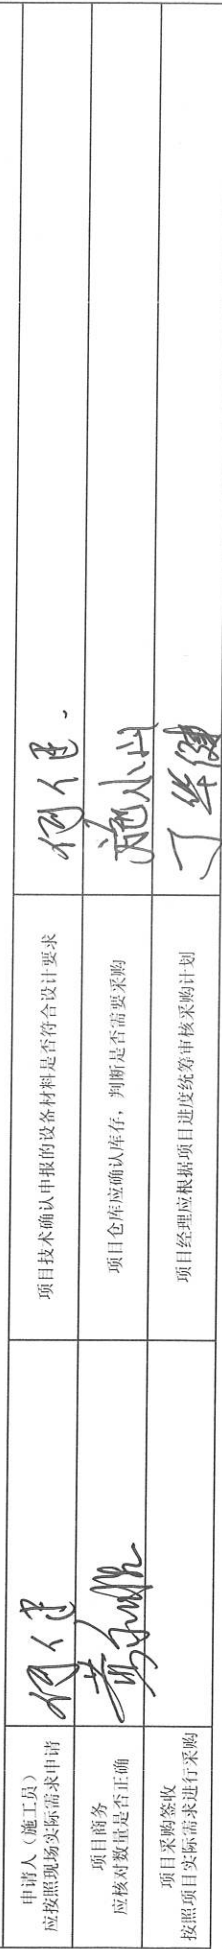 申请人（施工员）
应按照现场实际需求申请
项目技术确认申报的设备材料是否符合设计要求
项目商务
应核对数量是否正确
项目仓库应确认库存，判断是否需要采购
项目采购签收
按照项目实际需求进行采购
项目经理应根据项目进度统筹审核采购计划
丁华健